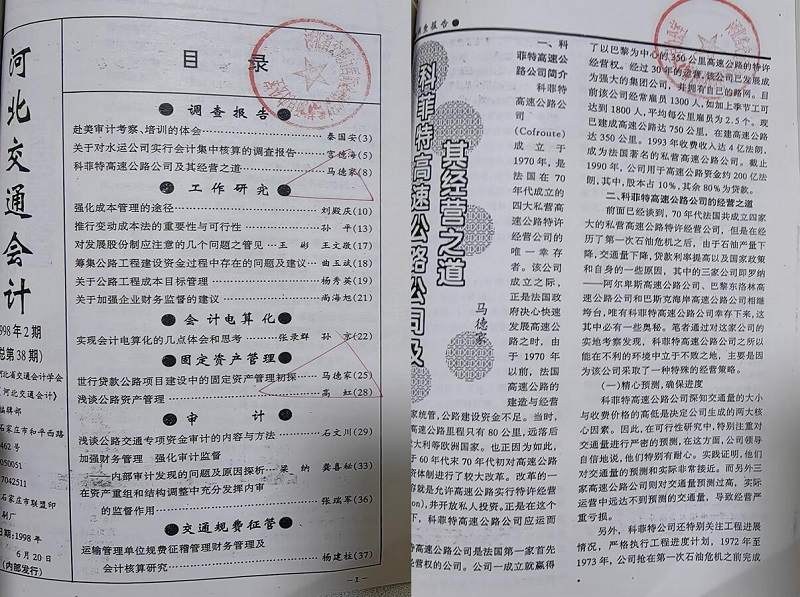 河北交通会计
998年2期
总第38期)
河北省交通会计学会
《河北交通会计》
编辑部
石家庄市和平西路
462号
050051
7042511
石家庄市联盟印
刷厂
日期:1998年
6月20日
(内部发行)
目 录
●调查报告●
赴美审计考察、培训的体会……秦国安(3)
关于对水运公司实行会计集中核算的调查报告……宫德海(5)
科菲特高速公路公司及其经营之道……马德家(8)
●工作研究●
强化成本管理的途径……刘殿庆(10)
推行变动成本法的重要性与可行性……孙 平(13)
对发展股份制应注意的几个问题之管见…王 彬 王文敬(17)
筹集公路工程建设资金过程中存在的问题及建议…曲玉斌(18)
关于公路工程成本目标管理……杨秀英(19)
关于加强企业财务监督的建议……尚海旭(21)
●会计电算化●
实现会计电算化的几点体会和思考……张录群 孙 京(22)
●固定资产管理●
世行贷款公路项目建设中的固定资产管理初探……马德家(25)
浅谈公路资产管理……高 虹(28)
●审 计●
浅谈公路交通专项资金审计的内容与方法……石文川(29)
加强财务管理 强化审计监督
——内部审计发现的问题及原因探析…梁 纳 龚喜秘(33)
在资产重组和结构调整中充分发挥内审
的监督作用……张瑞军(36)
●交通规费征管●
运输管理单位规费征稽管理财务管理及
会计核算研究……杨建柱(37)
-1-
查报告●
科菲特高速公路公司及
其经营之道
马德家
一、科
菲特高速公
路公司简介
科菲特
高速公路公
司
(Cofroute)
成立于
1970年,是
法国在70
年代成立的
四大私营高
速公路特许
经营公司的
唯一幸存
者。该公司
成立之际,
正是法国政
府决心快速
发展高速公
路之时,由
于1970年
以前,法国
高速公路的
建造与经营
家统管,公路建设资金不足。当时,
高速公路里程只有80公里,远落后
大利等欧洲国家。也正因为如此,
于60年代末70年代初对高速公路
资体制进行了较大改革。改革的一
容就是允许高速公路实行特许经营
on),并开放私人投资。正是在这个
下,科菲特高速公路公司应运而
特高速公路公司是法国第一家首先
经营权的公司。公司一成立就赢得
了以巴黎为中心的350公里高速公路的特许
经营权。经过30年的运营,该公司已发展成
为强大的集团公司,并拥有自己的路网。目
前该公司经常雇员1300人,如加上季节工可
达到1800人,平均每公里雇员为2.5个。现
已建成高速公路达750公里,在建高速公路
达350公里。1993年收费收入达4亿法朗,
成为法国著名的私营高速公路公司。截止
1990年,公司用于高速公路资金约200亿法
朗,其中,股本占10%,其余80%为贷款。
二、科菲特高速公路公司的经营之道
前面已经谈到,70年代法国共成立四家
大的私营高速公路特许经营公司,但是在经
历了第一次石油危机之后,由于石油产量下
降,交通量下降,贷款利率提高以及国家政策
和自身的一些原因,其中的三家公司即罗纳
——阿尔卑斯高速公路公司、巴黎东洛林高
速公路公司和巴斯克海岸高速公路公司相继
垮台,唯有科菲特高速公路公司幸存下来,这
其中必有一些奥秘。笔者通过对这家公司的
实地考察发现,科菲特高速公路公司之所以
能在不利的环境中立于不败之地,主要是因
为该公司采取了一种特殊的经营策略。
(一)精心预测,确保进度
科菲特高速公路公司深知交通量的大小
与收费价格的高低是决定公司生成的两大核
心因素。因此,在可行性研究中,特别注重对
交通量进行严密的预测,在这方面,公司领导
自信地说,他们特别有耐心。实践证明,他们
对交通量的预测和实际非常接近。而另外三
家高速公路公司则对交通量预测过高,实际
运营中远达不到预测的交通量,导致经营严
重亏损。
另外,科菲特公司还特别关注工程进展
情况,严格执行工程进度计划,1972年至
1973年,公司抢在第一次石油危机之前完成